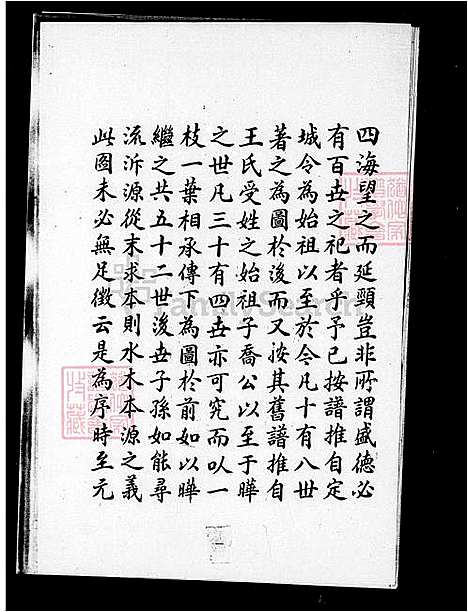 四海望之而延頸豈非所謂盛德必
有百世之祀者乎予已按譜推自定
城令為始祖以至於今凡十有八世
著之為圖於後而又按其舊譜推自
王氏受姓之始祖子喬公以至于曄
之世凡三十有四世亦可究而以一
枝一葉相承傳下為圖於前如以曄
繼之共五十二世後世子孫如能尋
流泝源從末求本則水木本源之義
此图未必無足徵云是為序時至元
FamilySearch
一